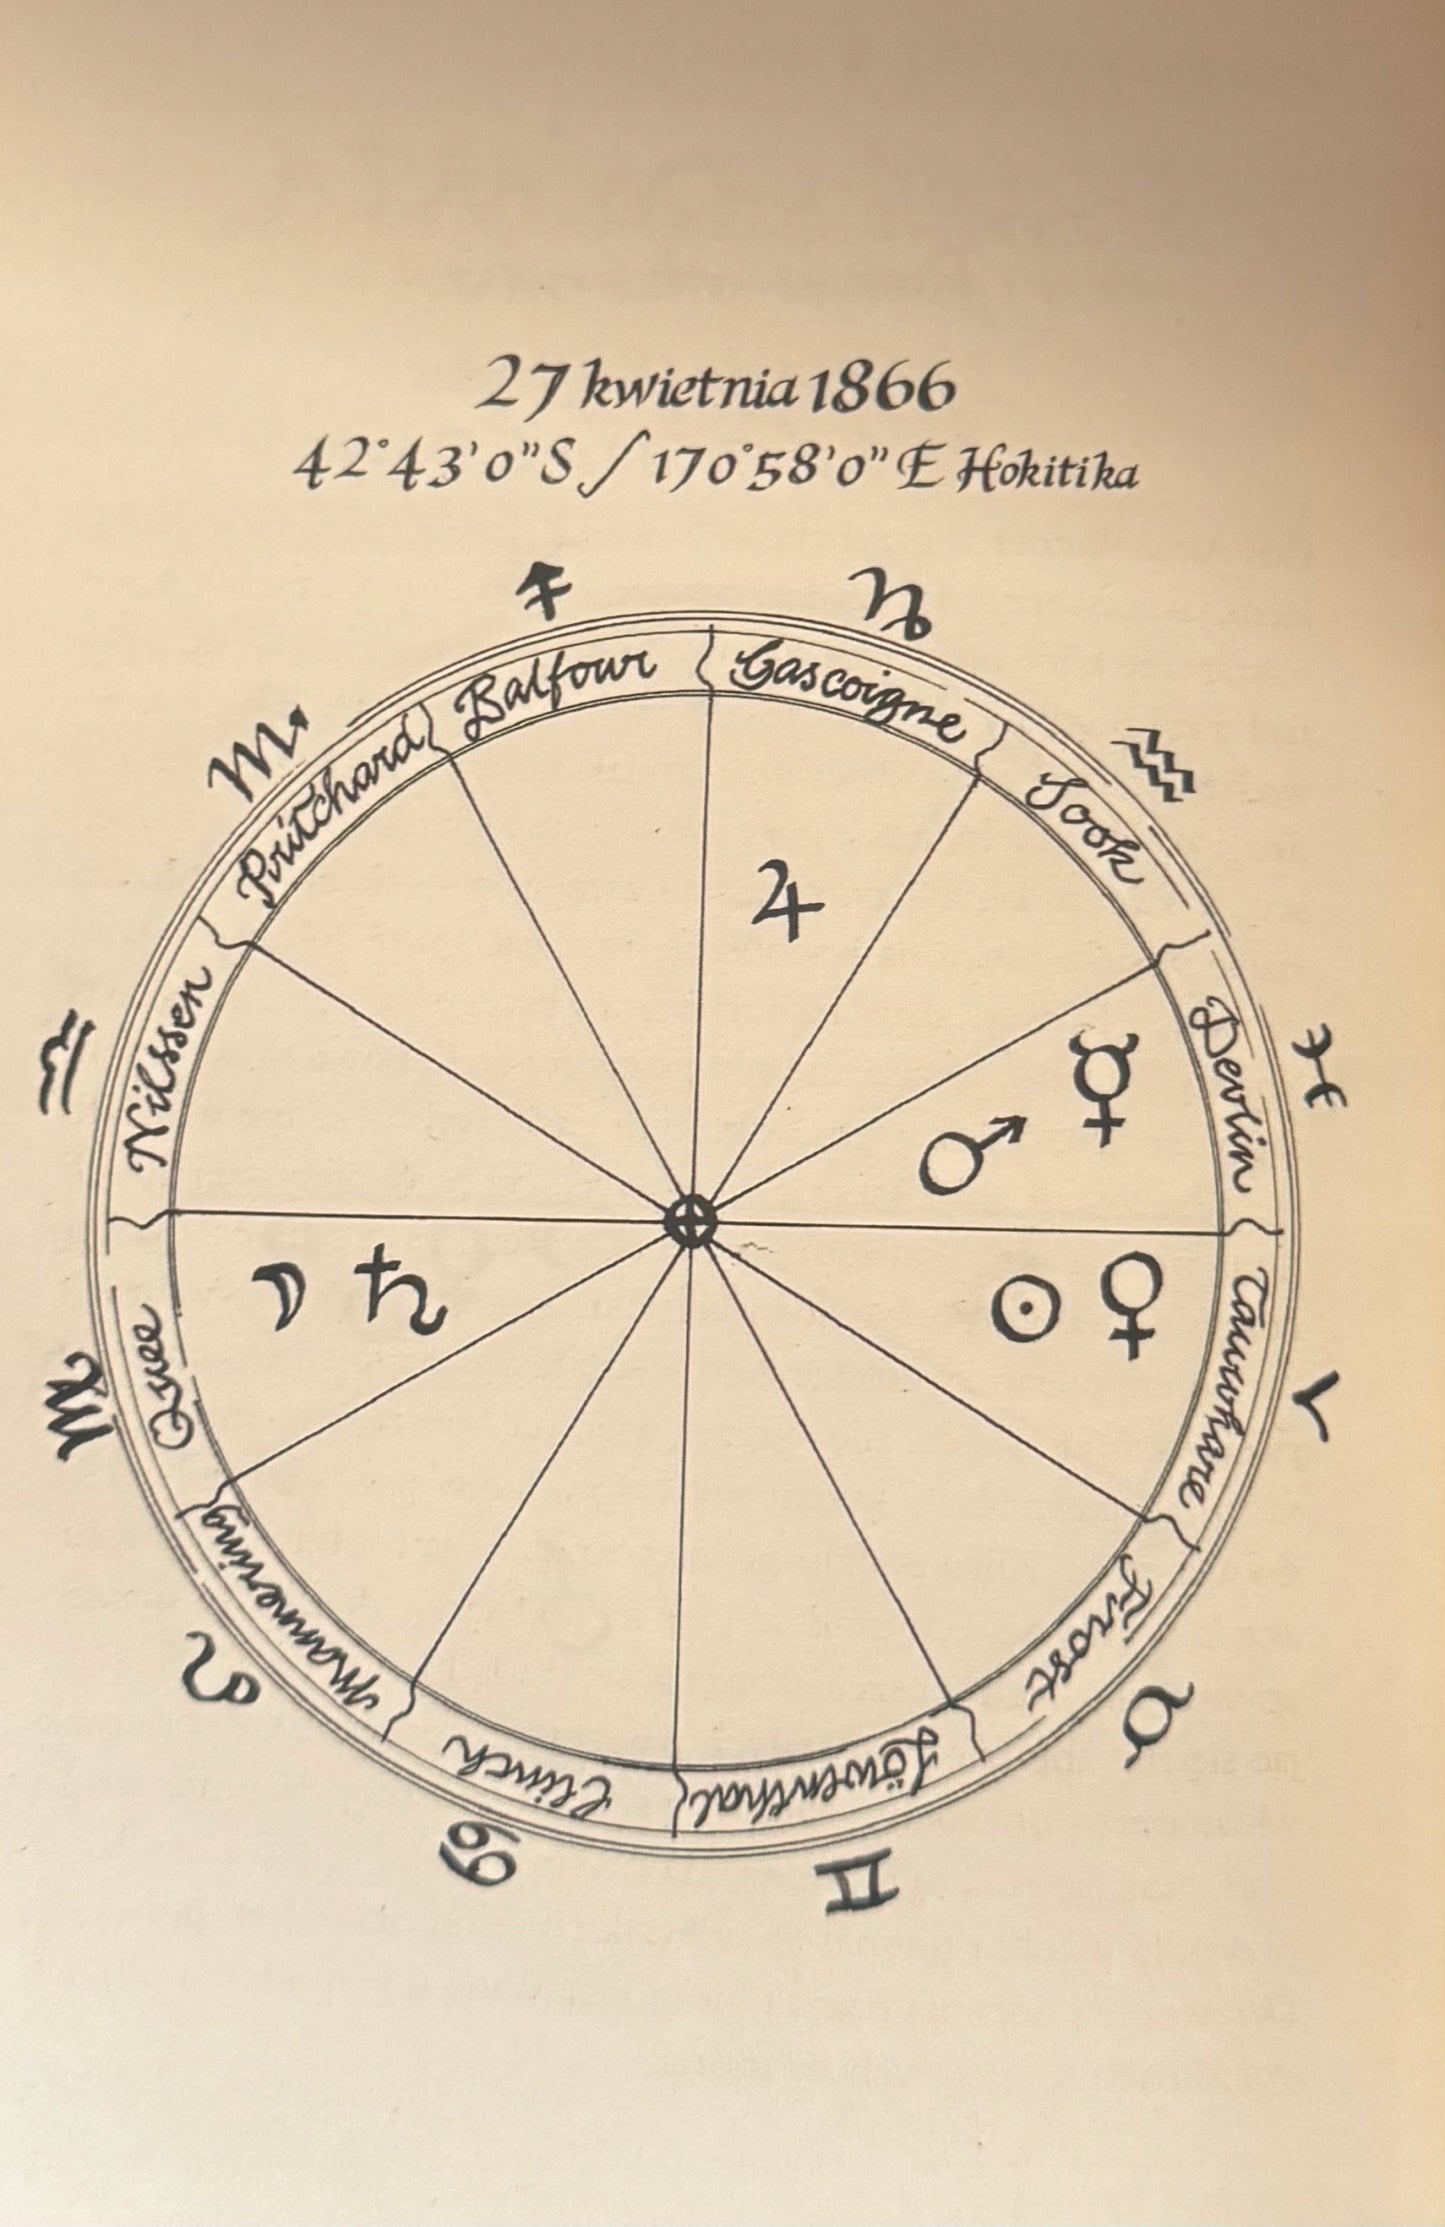 27 kwietnia 1866
42°43'0"S / 170°58'0" E Hokitika
Balfour
Gascoigne
Sook
Devlin
Tauwhare
Frost
Löwenthal
Clinch
Mannering
Quee
Nilssen
Pritchard